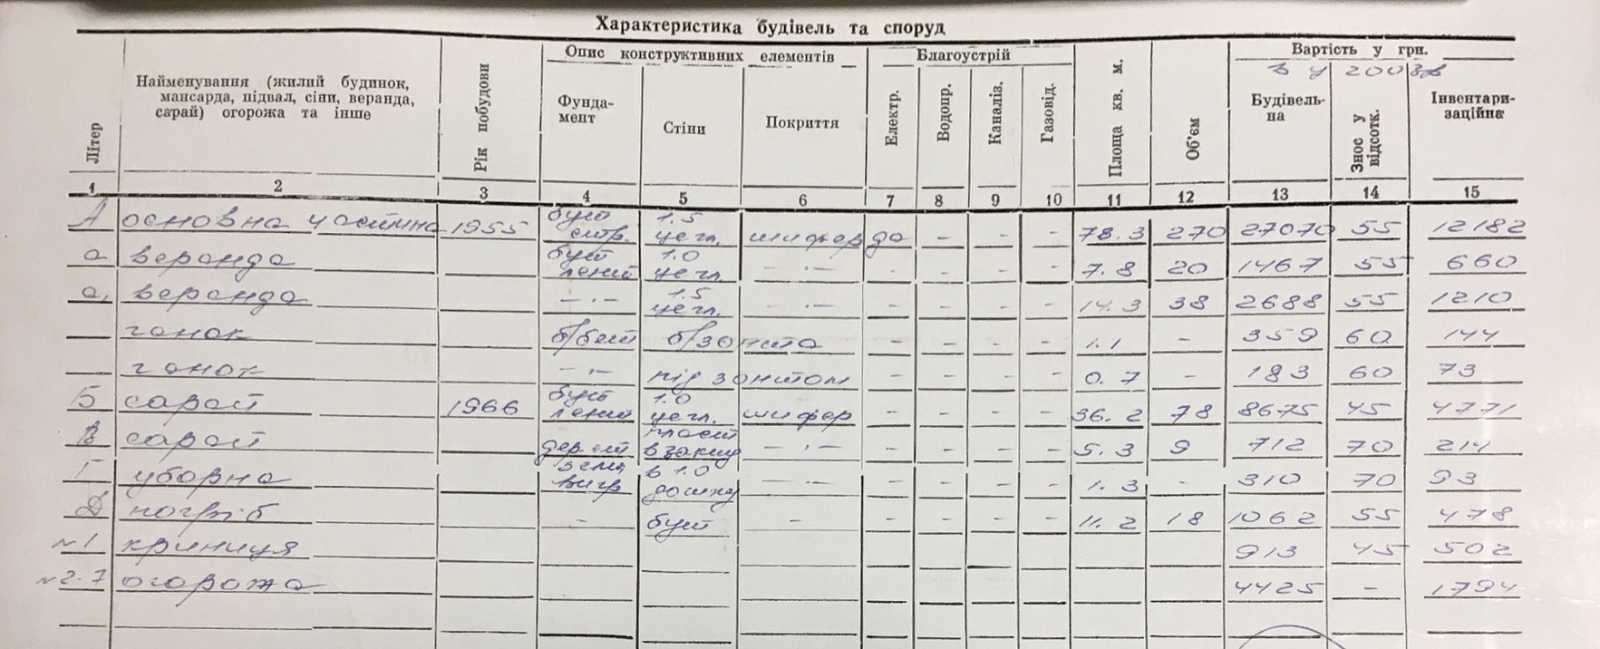 Характеристика будівель та споруд
Літер
Найменування (жилий будинок, мансарда, підвал, сіни, веранда, сарай) огорожа та інше
Рік побудови
Опис конструктивних елементів
Фунда-
мент
Стіни
Покриття
Благоустрій
Електр.
Водопр.
Каналіз.
Газовід.
Площа кв. м.
Об'єм
Вартість у грн.
в у 2003р
Будівель-
на
Знос у відсотк.
Інвентари-
заційна
1 2 3 4 5 6 7 8 9 10 11 12 13 14 15
А основна частина 1955 бут стр. 1.5 цегл. шифер да - - - 78.3 270 27070 55 12182
а веранда бут лений 1.0 цегл. -·- - - - - 7.8 20 1467 55 660
а, веранда -·- 1.5 цегл. -·- - - - - 14.3 38 2688 55 1210
ганок б/бет б/зонта - - - - 1.1 - 359 60 144
ганок -·- під зонтом - - - - 0.7 - 183 60 73
Б сарай 1966 бут лений 1.0 цегл. шифер - - - - 36.2 78 8675 45 4771
В сарай дер. ст в закид -·- - - - - 5.3 9 712 70 214
Г уборна вигр в 1.0 дошку -·- - - - - 1.3 - 310 70 93
Д погріб - бут - - - - - 11.2 18 1062 55 478
№1 криниця 913 45 502
№2-7 огорожа 4425 - 1794